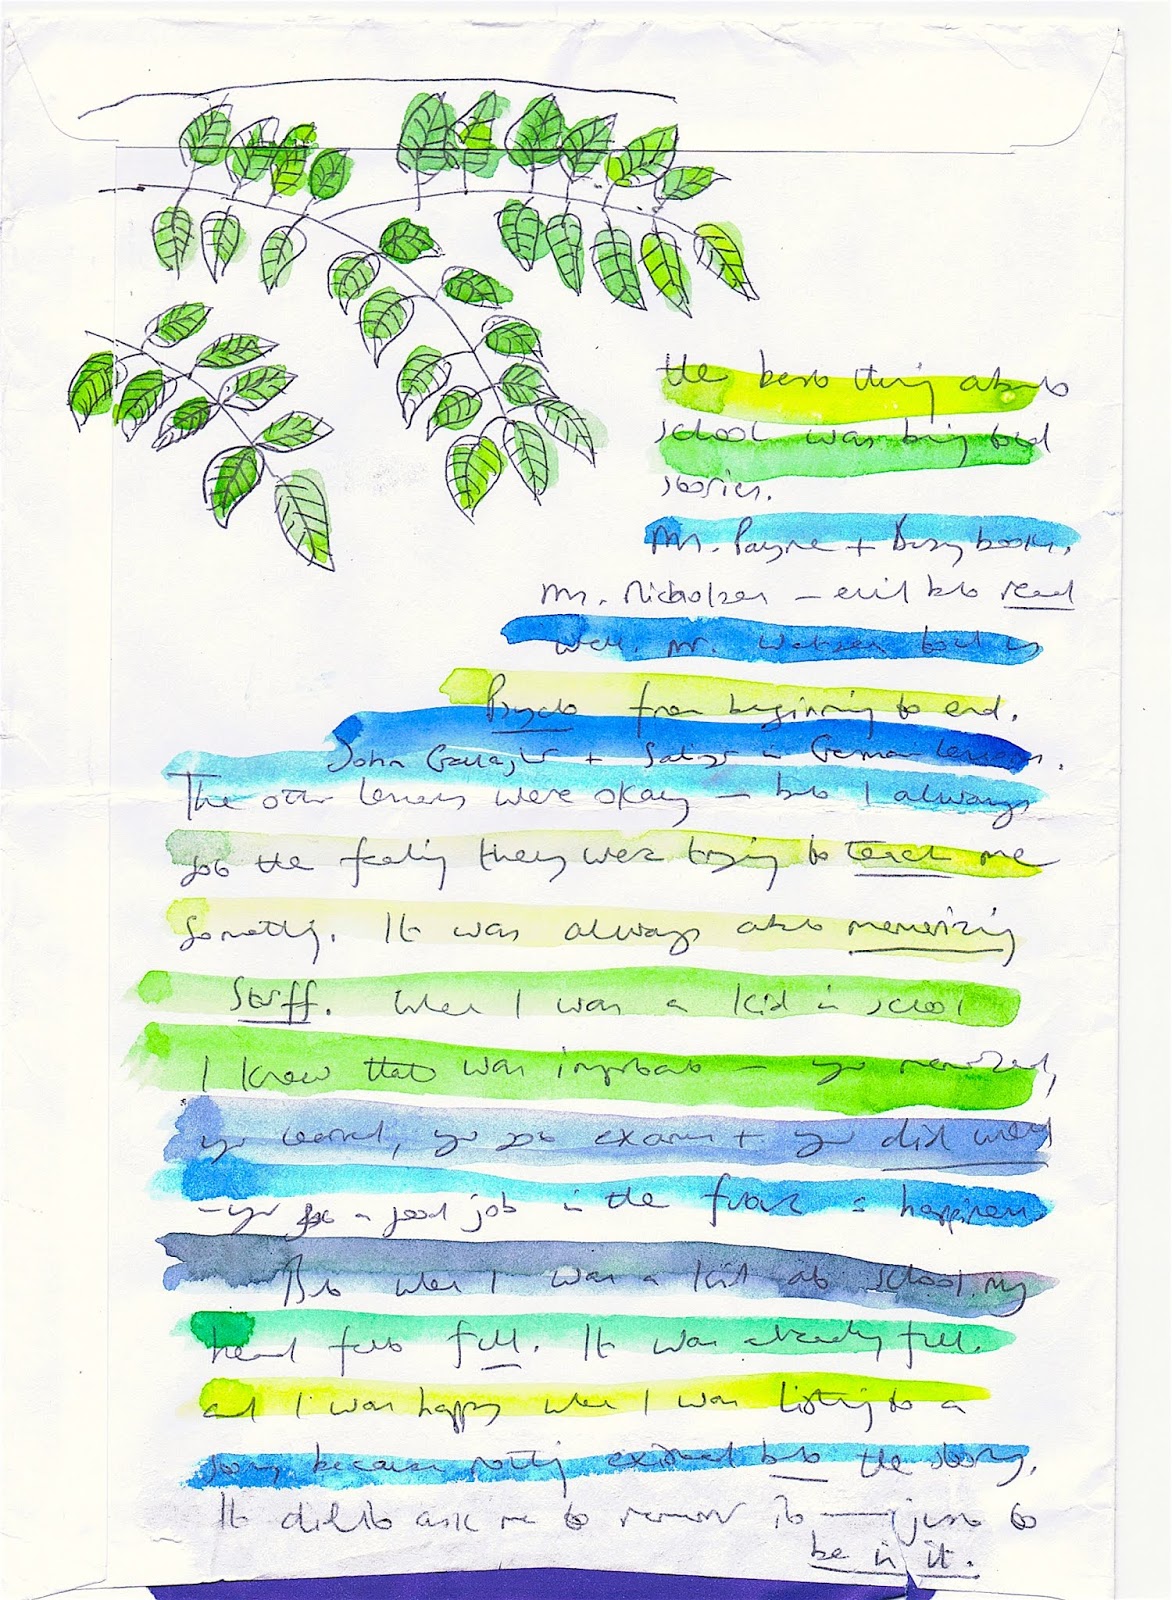 the best thing about
school was being told
stories.
Mr. Payne + Busy books.
Mr. Nicholson – evil but read
well. Mr. Watson told us
Psycho from beginning to end.
John + in German lessons.
The other lessons were okay – but I always
got the feeling they were trying to teach me
something. It was always about memorizing
stuff. When I was a kid in school
I knew that was important – you memorized,
you learned, you got exams + you did well
– you got a good job in the future = happiness.
But when I was a kid at school my
head felt full. It was already full.
and I was happy when I was listening to a
story, because nothing existed but the story.
It didn't ask me to remember it — just to
be in it.